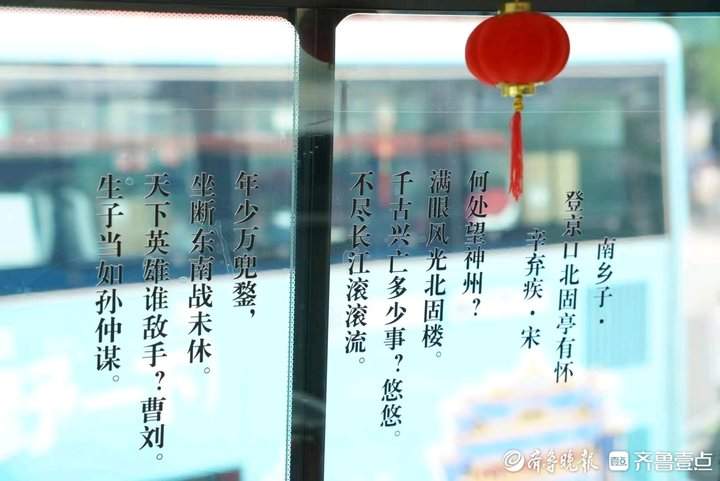 南乡子·
登京口北固亭有怀
辛弃疾·宋
何处望神州？
满眼风光北固楼。
千古兴亡多少事？悠悠。
不尽长江滚滚流。
年少万兜鍪，
坐断东南战未休。
天下英雄谁敌手？曹刘。
生子当如孙仲谋。
齐鲁晚报
齐鲁壹点